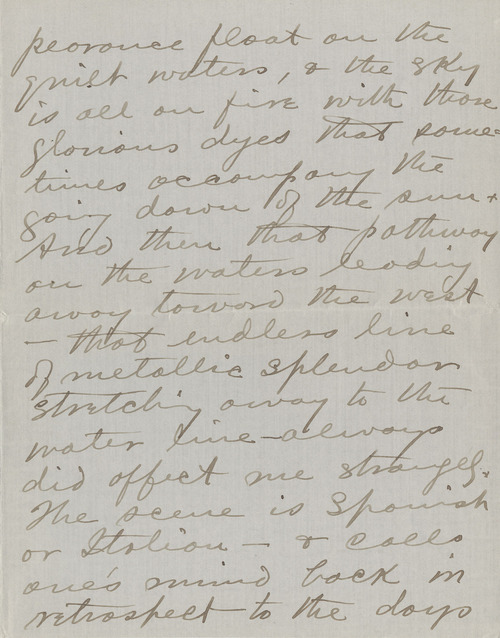 pearance float on the
quiet waters, & the sky
is all on fire with those
glorious dyes that some-
times accompany the
going down of the sun.
And then that pathway
on the waters leading
away toward the west
— that endless line
of metallic splendor
stretching away to the
water line - always
did affect me strangely.
The scene is Spanish
or Italian — & calls
one's mind back in
retrospect to the days